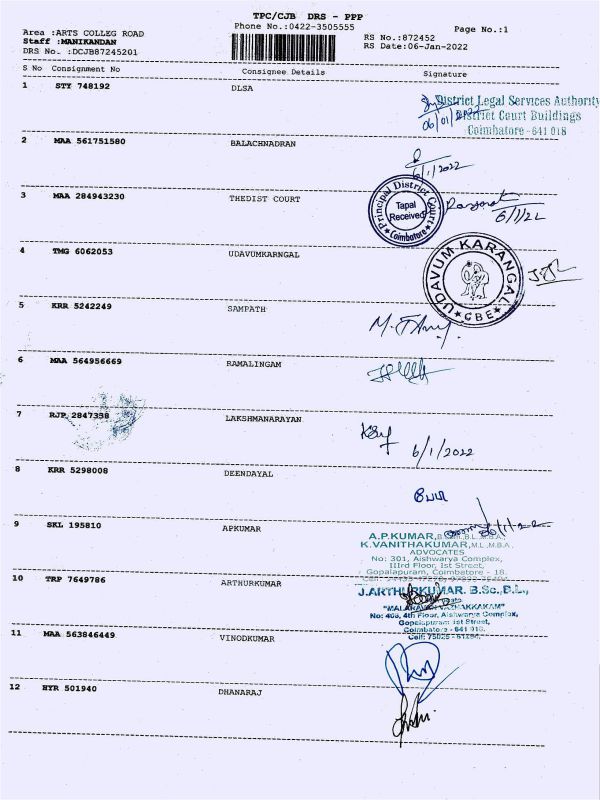 TPC/CJB DRS - PPP
Phone No.:0422-3505555
Page No.:1
Area :ARTS COLLEG ROAD
Staff :MANIKANDAN
RS No.:872452
DRS No. :DCJB87245201
RS Date:06-Jan-2022
S No Consignment No Consignee Details Signature
1 STY 748192 DLSA
District Legal Services Authority
District Court Buildings
Coimbatore - 641 018
06/01/2022
2 MAA 561751580 BALACHNADRAN
6/1/2022
3 MAA 284943230 THEDIST COURT
Principal District Court
Tapal
Received
Coimbatore
6/1/22
4 TMG 6062053 UDAVUMKARNGAL
UDAVUM KARANGAL
CBE
5 KRR 5242249 SAMPATH
6 MAA 564956669 RAMALINGAM
7 RJP 2847358 LAKSHMANARAYAN
6/1/2022
8 KRR 5298008 DEENDAYAL
9 SKL 195810 APKUMAR
A.P.KUMAR,
K.VANITHAKUMAR, M.L.,M.B.A.,
ADVOCATES
No: 301, Aishwarya Complex,
IIIrd Floor, Ist Street,
Gopalapuram, Coimbatore - 18.
10 TRP 7649786 ARTHURKUMAR
J.ARTHURKUMAR. B.Sc.,B.L.,
No: 408, 4th Floor, Aishwarya Complex,
Gopalapuram Ist Street,
Coimbatore - 641 018.
11 MAA 563846449 VINODKUMAR
12 HYR 501940 DHANARAJ